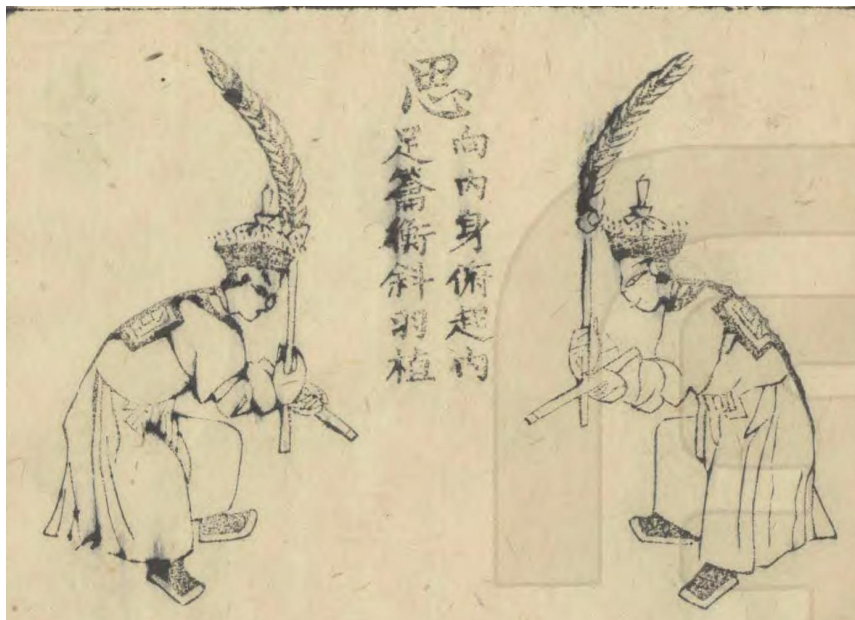 思
向内身俯起内
足籥衡斜羽植